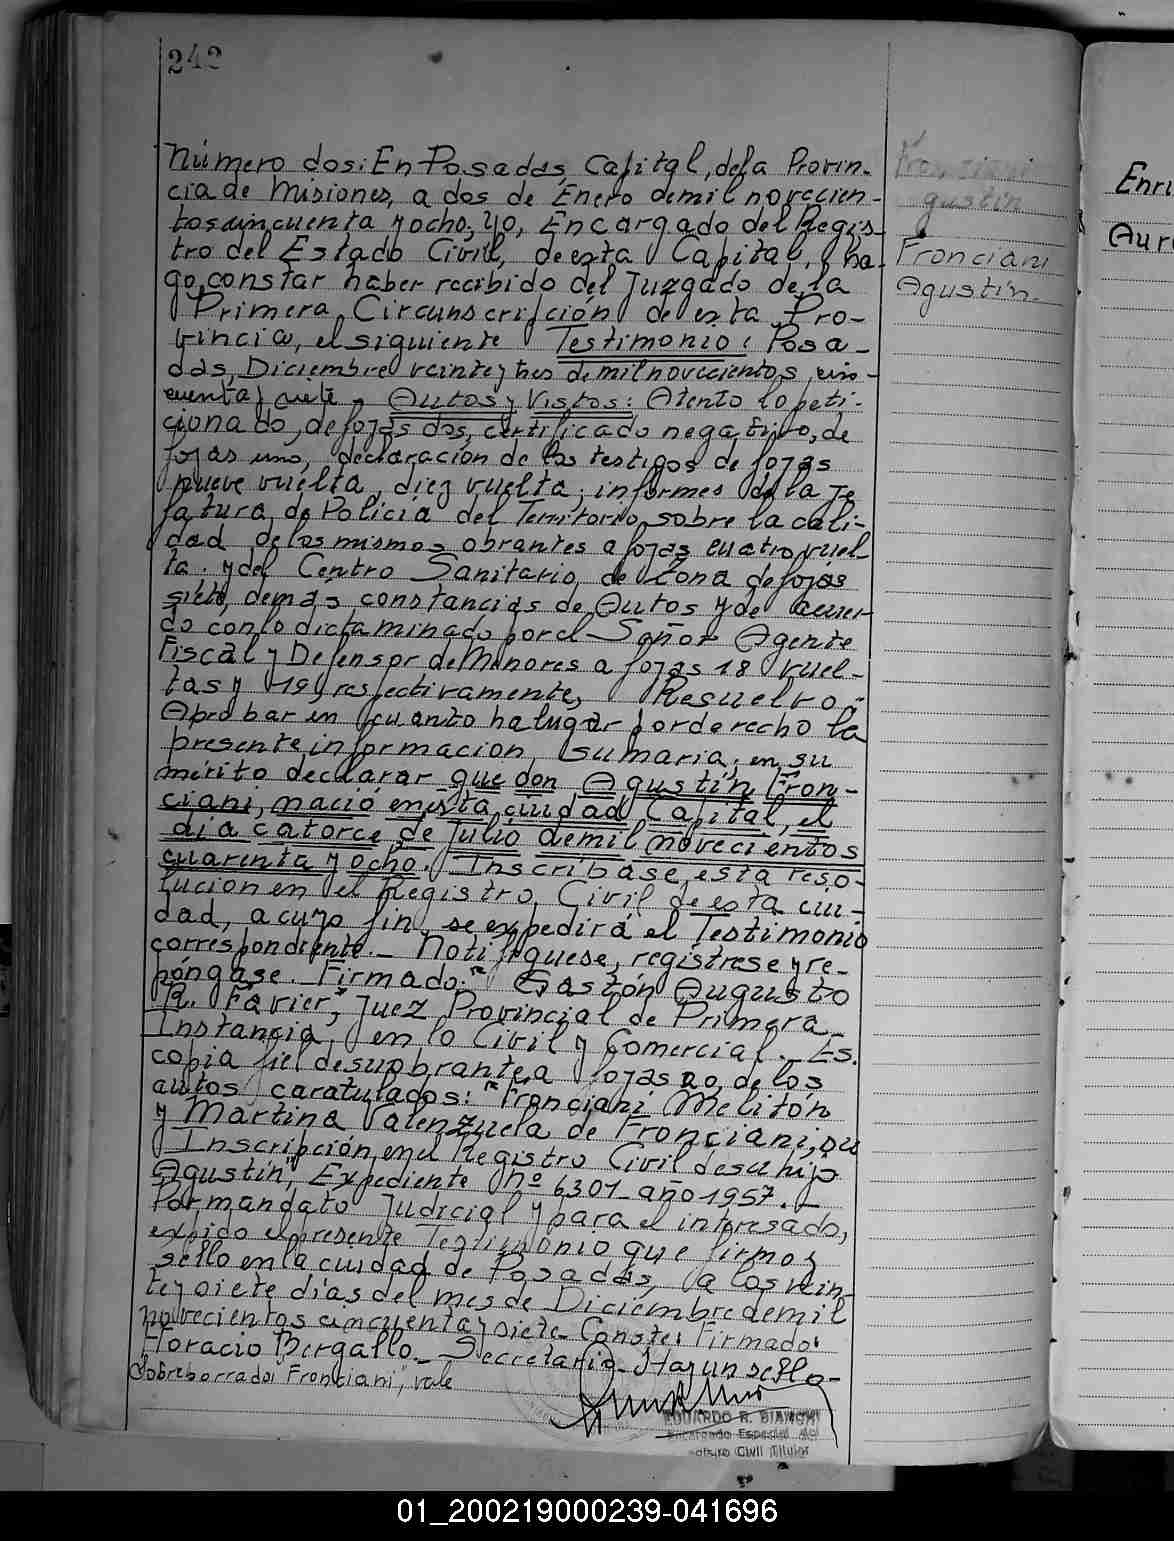 242
Número dos: En Posadas, Capital, dela Provin-
cia de Misiones, a dos de Enero demil novecien-
tos cincuenta y ocho, yo, Encargado del Regis-
tro del Estado Civil, de esta Capital, ha-
go, constar haber recibido del Juzgado de la
Primera Circunscripción de esta Pro-
vincia, el siguiente Testimonio: Posa-
das, Diciembre veinte y tres de mil novecientos cin-
cuenta y siete - Autos y Vistos: Atento lo peti-
cionado, de fojas dos, certificado negativo, de
fojas uno, declaración de los testigos de fojas
nueve vuelta, diez vuelta; informes de la Je
fatura de Policía del Territorio sobre la cali-
dad de los mismos obrantes a fojas cuatro vuel-
ta. y del Centro Sanitario, de Zona de fojas
siete, demás constancias de Autos y de acuer-
do con lo dictaminado por el Señor Agente
Fiscal y Defensor de Menores a fojas 18 vuel-
tas y 19, respectivamente, Resuelvo:
Aprobar en cuanto ha lugar por derecho la
presente información sumaria; en su
mérito declarar que don Agustín Fron-
ciani, nació en esta ciudad Capital, el
día catorce de Julio demil novecientos
cuarenta y ocho. Inscríbase esta reso-
lución en el Registro Civil de esta ciu-
dad, a cuyo fin, se expedirá el Testimonio
correspondiente. - Notifíquese, regístrese y re-
póngase. Firmado: "Gastón Augusto
R. Favier", Juez Provincial de Primera
Instancia, en lo Civil y Comercial. - Es.
copia fiel de su obrante a fojas 20, de los
autos caratulados: "Fronciani Melitón
y Martina Valenzuela de Fronciani, su
Inscripción en el Registro Civil de su hijo
Agustín", Expediente Nº 6301 - año 1957. -
Por mandato Judicial y para el interesado,
expido el presente Testimonio que firmo y
sello en la ciudad de Posadas, a los vein-
te y siete días del mes de Diciembre demil
novecientos cincuenta y siete - Conste: Firmado:
Horacio Bergallo. - Secretario - Hay un sello -
Sobreborrado: Fronciani, vale
EDUARDO R. BIANCHI
Encargado Especial del
Civil Titular
Fronciani
Agustín
Fronciani
Agustín.
Enri
Aure
01_200219000239-041696